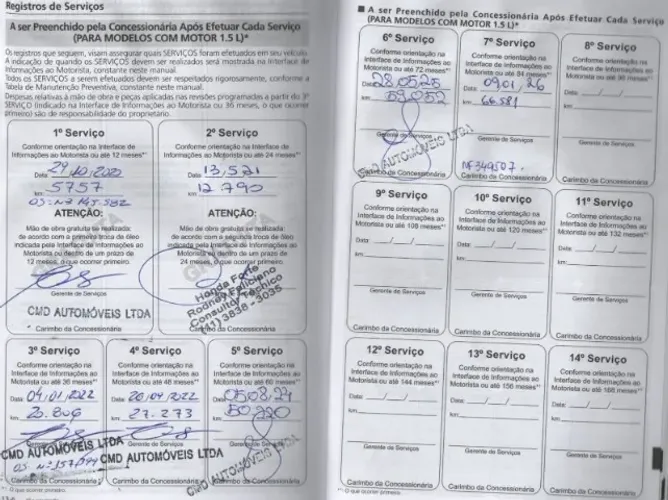 Registros de Serviços
A ser Preenchido pela Concessionária Após Efetuar Cada Serviço
(PARA MODELOS COM MOTOR 1.5 L)*
Os registros que seguem, visam assegurar quais SERVIÇOS foram efetuados em seu veículo.
A indicação de quando os SERVIÇOS devem ser realizados será mostrada na Interface de
Informações ao Motorista, constante neste manual.
Todos os SERVIÇOS a serem efetuados devem ser respeitados rigorosamente, conforme a
Tabela de Manutenção Preventiva, constante neste manual.
Despesas relativas à mão de obra e peças aplicadas nas revisões programadas a partir do 3º
SERVIÇO (indicado na Interface de Informações ao Motorista ou 36 meses, o que ocorrer
primeiro) são de responsabilidade do proprietário.
1º Serviço
Conforme orientação na Interface de
Informações ao Motorista ou até 12 meses*¹
Data:
km: 5757
ATENÇÃO:
Mão de obra gratuita se realizada
de acordo com a primeira troca de óleo
indicada pela Interface de Informações ao
Motorista ou dentro de um prazo de
12 meses, o que ocorrer primeiro.
Gerente de Serviços
CMD AUTOMÓVEIS LTDA
Carimbo da Concessionária
2º Serviço
Conforme orientação na Interface de
Informações ao Motorista ou até 24 meses*¹
Data:
km: 12 790
ATENÇÃO:
Mão de obra gratuita se realizada
de acordo com a segunda troca de óleo
indicada pela Interface de Informações ao
Motorista ou dentro de um prazo de
24 meses, o que ocorrer primeiro.
Honda Forte
Rodney Feliciano
Consultor Técnico
(11) 3838 - 3035
Carimbo da Concessionária
3º Serviço
Conforme orientação na
Interface de Informações ao
Motorista ou até 36 meses*¹
Data: 04/01/2022
km: 20.806
CMD AUTOMÓVEIS LTDA
Carimbo da Concessionária
4º Serviço
Conforme orientação na
Interface de Informações ao
Motorista ou até 48 meses*¹
Data:
km: 27.273
Gerente de Serviços
CMD AUTOMÓVEIS LTDA
Carimbo da Concessionária
5º Serviço
Conforme orientação na
Interface de Informações ao
Motorista ou até 60 meses*¹
Data: 05.08.24
km:
Gerente de Serviços
CMD AUTOMÓVEIS LTDA
Carimbo da Concessionária
*¹: O que ocorrer primeiro.
A ser Preenchido pela Concessionária Após Efetuar Cada Serviço
(PARA MODELOS COM MOTOR 1.5 L)*
6º Serviço
Conforme orientação na
Interface de Informações ao
Motorista ou até 72 meses*¹
Data: 28.05.25
km: 59.052
Gerente de Serviços
CMD AUTOMÓVEIS LTDA
Carimbo da Concessionária
7º Serviço
Conforme orientação na
Interface de Informações ao
Motorista ou até 84 meses*¹
Data: 09.01.26
km: 66.581
Gerente de Serviços
NF349507.
Carimbo da Concessionária
8º Serviço
Conforme orientação na
Interface de Informações ao
Motorista ou até 96 meses*¹
Data: ___/___/___
km:
Gerente de Serviços
Carimbo da Concessionária
9º Serviço
Conforme orientação na
Interface de Informações ao
Motorista ou até 108 meses*¹
Data: ___/___/___
km:
Gerente de Serviços
Carimbo da Concessionária
10º Serviço
Conforme orientação na
Interface de Informações ao
Motorista ou até 120 meses*¹
Data: ___/___/___
km:
Gerente de Serviços
Carimbo da Concessionária
11º Serviço
Conforme orientação na
Interface de Informações ao
Motorista ou até 132 meses*¹
Data: ___/___/___
km:
Gerente de Serviços
Carimbo da Concessionária
12º Serviço
Conforme orientação na
Interface de Informações ao
Motorista ou até 144 meses*¹
Data: ___/___/___
km:
Gerente de Serviços
Carimbo da Concessionária
13º Serviço
Conforme orientação na
Interface de Informações ao
Motorista ou até 156 meses*¹
Data: ___/___/___
km:
Gerente de Serviços
Carimbo da Concessionária
14º Serviço
Conforme orientação na
Interface de Informações ao
Motorista ou até 168 meses*¹
Data: ___/___/___
km:
Gerente de Serviços
Carimbo da Concessionária
*¹: O que ocorrer primeiro.